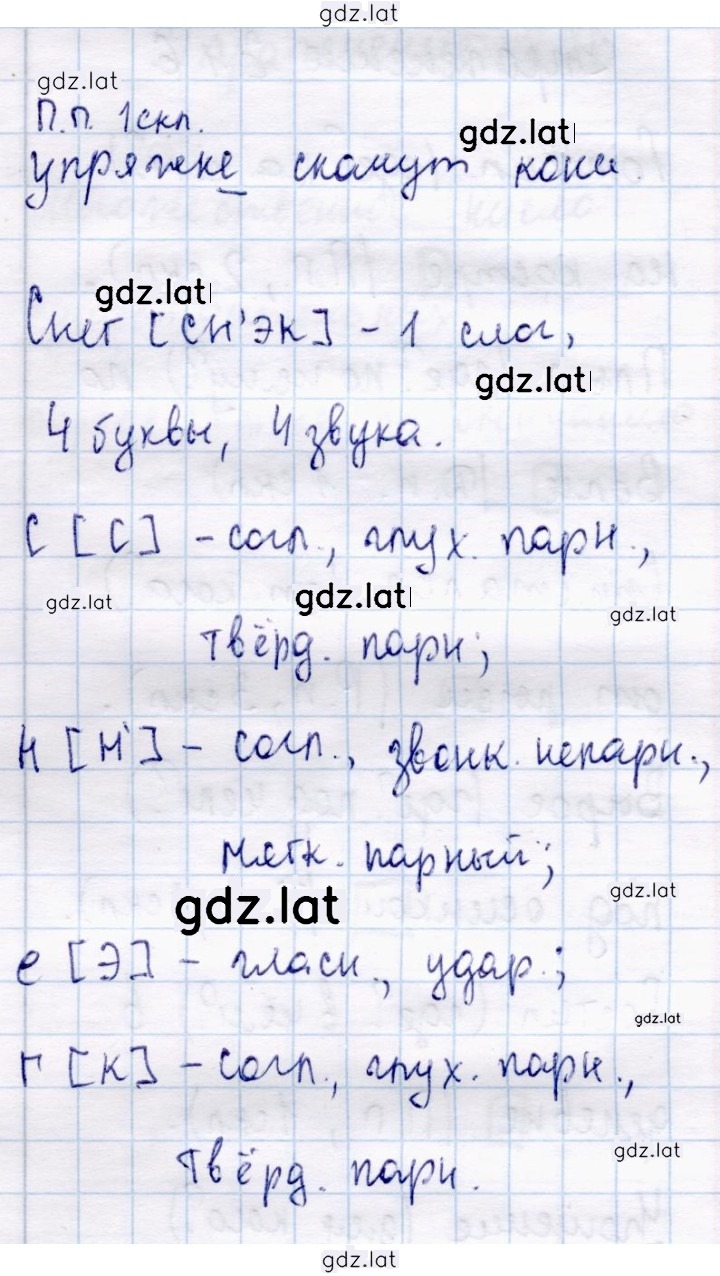 gdz.lat
gdz.lat
П.п. 1скл.
gdz.lat
упряжке скачут кони
gdz.lat
Снег [сн'эк] - 1 слог,
gdz.lat
4 буквы, 4 звука.
с [с] - согл., глух. парн.,
gdz.lat gdz.lat gdz.lat
твёрд. парн;
н [н'] - согл., звонк. непарн.,
мягк. парный;
gdz.lat gdz.lat
е [э] - гласн., удар.;
gdz.lat
г [к] - согл., глух. парн.,
gdz.lat
твёрд. парн.
gdz.lat